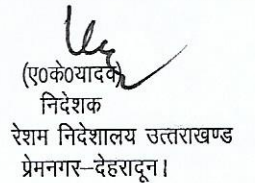 (ए०के०यादव)
निदेशक
रेशम निदेशालय उत्तराखण्ड
प्रेमनगर–देहरादून।